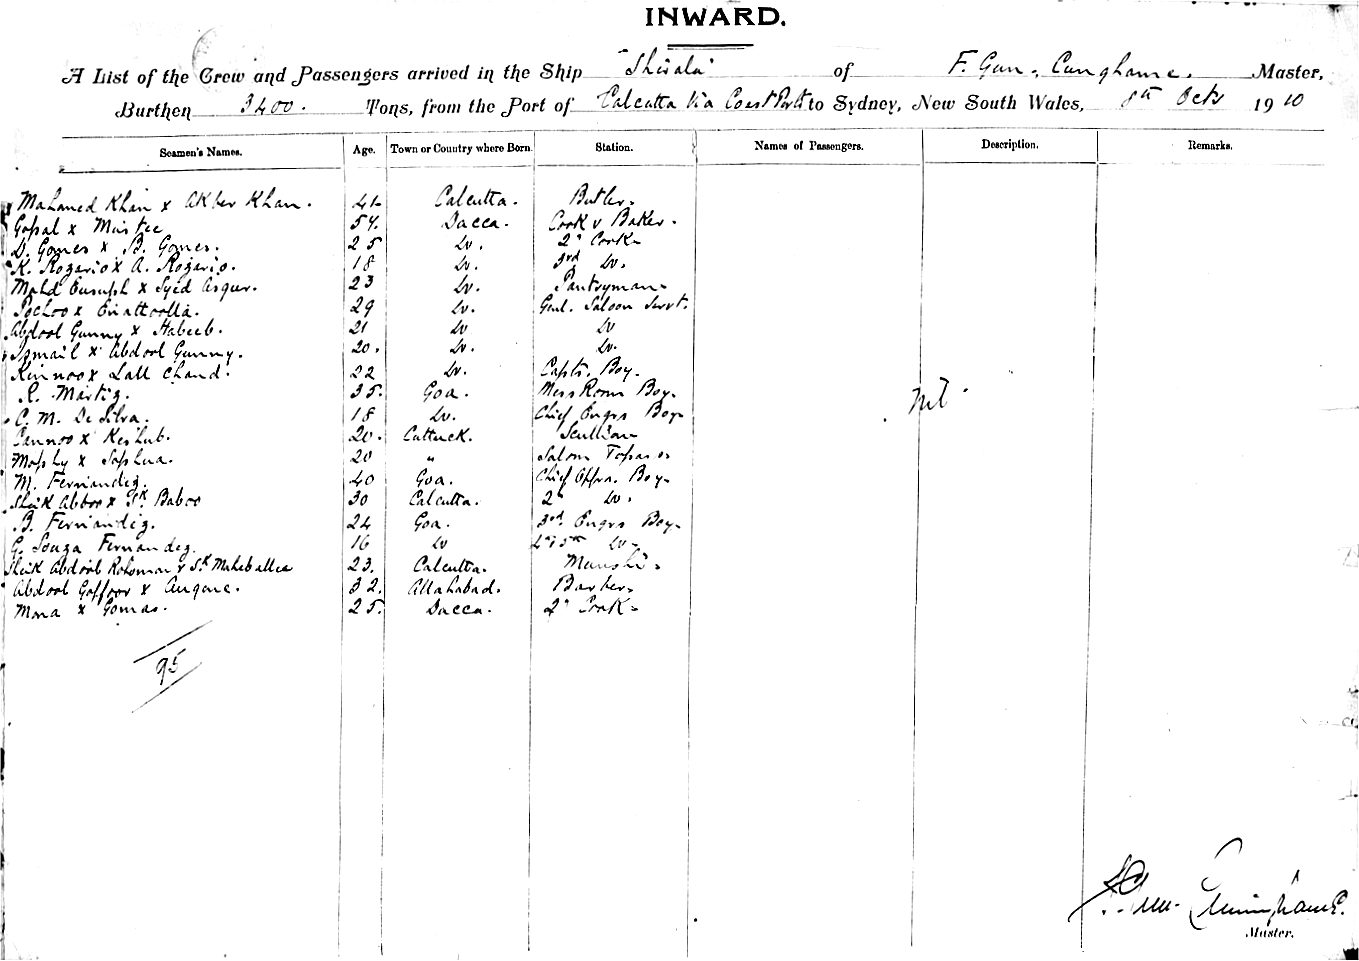 INWARD.
A List of the Crew and Passengers arrived in the Ship "Shirala" of F. Gun. Cunghame. Master,
Burthen 3400. Tons, from the Port of Calcutta Via Coast Ports to Sydney, New South Wales, 8th Octr 1910
Seamen's Names. Age. Town or Country where Born. Station. Names of Passengers. Description. Remarks.
Mahamed Khan x Akber Khan. 41 Calcutta. Butler.
Gopal x Mustee 54. Dacca. Cook & Baker.
D. Gomes x B. Gomes. 25 Do. 2d Cook
K. Rozario x A. Rozario. 18 Do. 3rd Do.
Mahd Eusuph x Syed Asgur. 23 Do. Pantryman
Pochoo x Enattoolla. 29 Do. Genl. Saloon Servt.
Abdool Gunny x Habeeb. 21 Do Do
Ismail x Abdool Gunny. 20. Do. Do.
Kinnoo x Lall Chand. 22 Do. Capts. Boy.
R. Martiz. 35. Goa. Mess Room Boy.
C. M. De Silva. 18 Do. Chief Engrs Boy Nil
Cannoo x Keshub. 20. Cuttuck. Scullion
Mophy x Sophua. 20 " Saloon Topas
M. Fernandez. 40 Goa. Chief Offrs. Boy
Sheik Abboo x Sk Baboo 30 Calcutta. 2d Do.
B. Fernandez. 24 Goa. 3rd. Engrs Boy
G. Souza Fernandez. 16 Do 4th 5th Do
Sheik Abdool Rohoman x Sk Mahaballee 23. Calcutta. Munshi
Abdool Goffoor x Augnue. 32. Allahabad. Barber
Mona x Gomas. 25. Dacca. 2d Cook
95
F. Gun. Cuninghame.
Master.